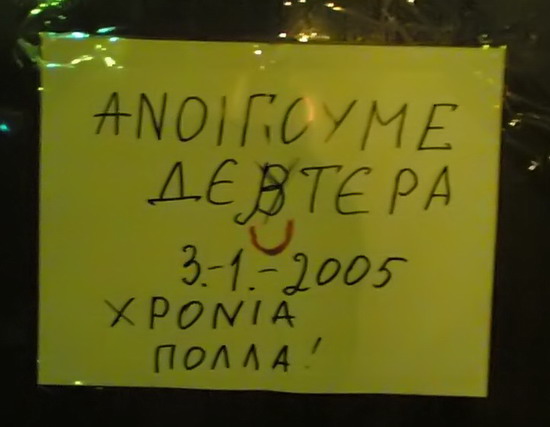 ΑΝΟΙΓΟΥΜΕ
ΔΕΒΤΕΡΑ
υ
3.-1.-2005
ΧΡΟΝΙΑ
ΠΟΛΛΑ!